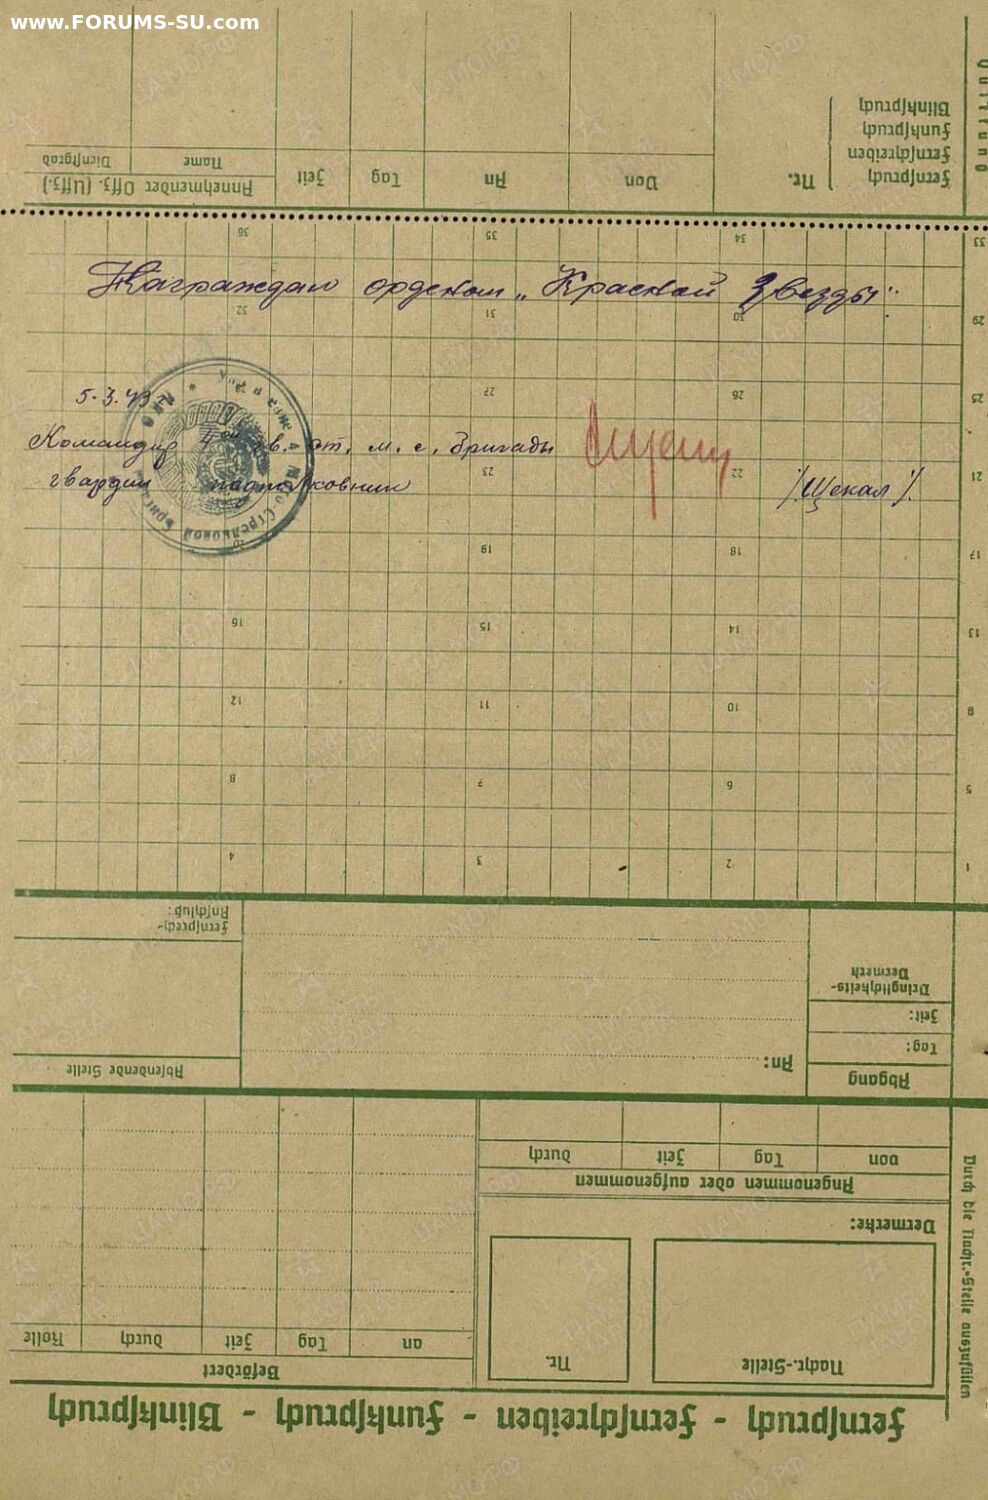 www.FORUMS-SU.com
Quittung
Fernspruch
Fernschreiben
Funkspruch
Blinkspruch
Nr.
Von
An
Tag
Zeit
Annehmender Offz. (Uffz.)
Name
Dienstgrad
33 34 35 36
Награждан орденом „Красной Звезды".
29 30 31 32
25 26 27
5.3.43 г.
Командир 4ой гв. от. м. с. бригады
21 22 23
гвардии подполковник /Щекал/.
17 18 19 20
13 14 15 16
9 10 11 12
5 6 7 8
1 2 3 4
Abgang
Tag:
Zeit:
Dringlichkeits-
Vermerk
An:
Absendende Stelle
Fernsprech-
Anschluß:
Durch die Nachr.-Stelle auszufüllen
Angenommen oder aufgenommen
von
Tag
Zeit
durch
Vermerke:
Nachr.-Stelle
Nr.
Befördert
an
Tag
Zeit
durch
Rolle
Fernspruch - Fernschreiben - Funkspruch - Blinkspruch
ЦАМО.РФ